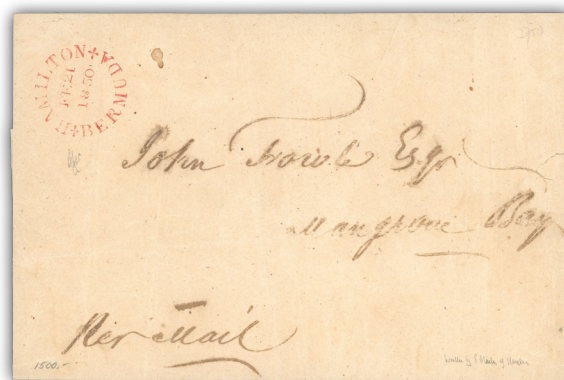 HAMILTON BERMUDA
FE 21
1850
John Fowle Esqr
Mangrove Bay
Per Mail
1500.-